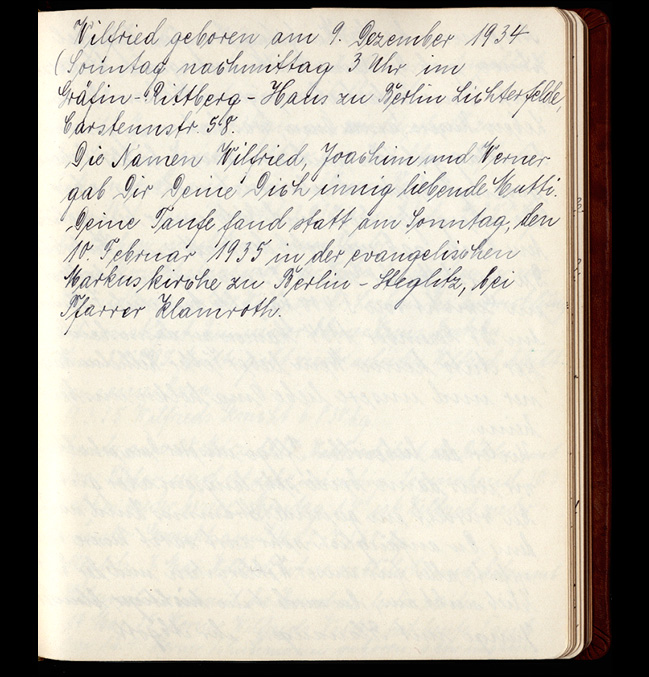 Wilfried geboren am 9. Dezember 1934
(Sonntag nachmittag 3 Uhr im
Gräfin-Rittberg-Haus zu Berlin Lichterfelde,
Carstennstr. 58.
Die Namen Wilfried, Joachim und Werner
gab Dir Deine Dich innig liebende Mutti.
Deine Taufe fand statt am Sonntag, den
10. Februar 1935 in der evangelischen
Markuskirche zu Berlin-Steglitz, bei
Pfarrer Klamroth.